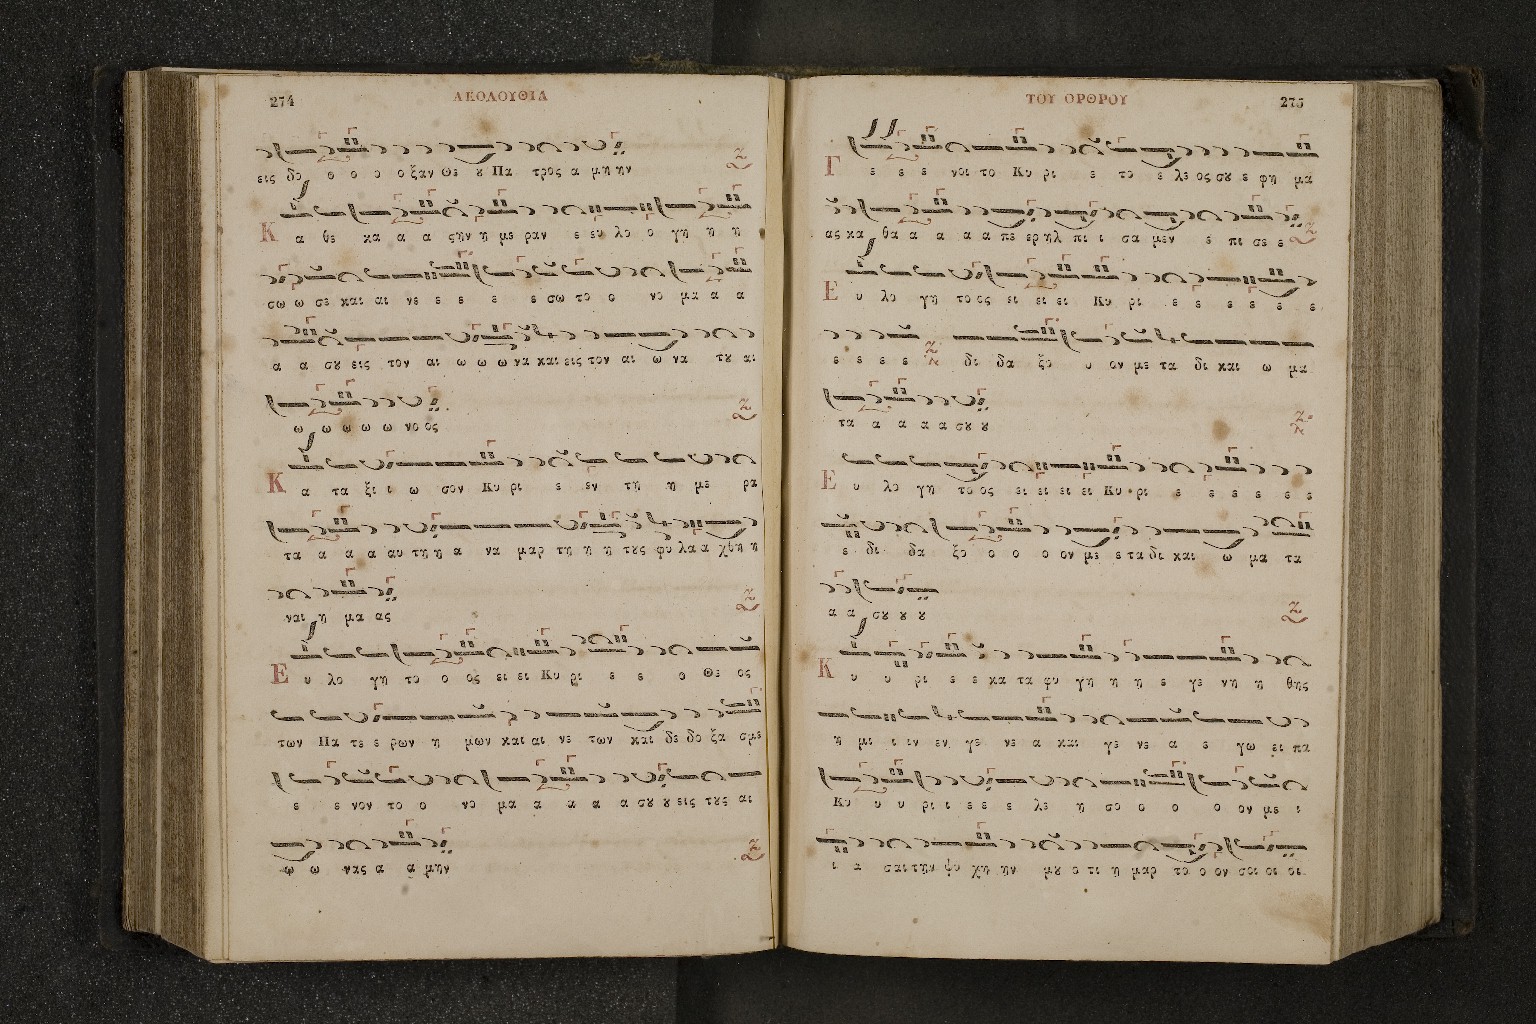 274
ΑΚΟΛΟΥΘΙΑ
εις δο ο ο ο ο ξαν Θε ȣ Πα τρος α μη ην
Κ α θε κα α α ςην η με ραν ε ευ λο ο γη η η
σω ω σε και αι νε ε ε ε ε ε σω το ο νο μα α α
α α σȣ εις τον αι ω ω ω να και εις τον αι ω να τȣ αι
ω ω ω ω ω νο ος
Κ α τα ξι ι ω σον Κυ ρι ε εν τη η με ρα
τα α α α αυ τη η α να μαρ τη η η τȣς φυ λα α χθη η
ναι η μα ας
Ε υ λο γη το ο ος ει ει Κυ ρι ε ε ο Θε ος
των Πα τε ε ρων η μων και αι νε των και δε δο ξα σμε
ε ε νον το ο νο μα α α α α σȣ ȣ εις τȣς αι
ω ω νας α α μην
ΤΟΥ ΟΡΘΡΟΥ
275
Γ ε ε ε νοι το Κυ ρι ε το ε λε ος σȣ ε φη μα
ας κα θα α α α α πε ερ ηλ πι ι σα μεν ε πι σε ε
Ε υ λο γη το ος ει ει ει Κυ ρι ε ε ε ε ε ε
ε ε ε ε δι δα ξο υ ον με τα δι και ω μα
τα α α α α σȣ ȣ
Ε υ λο γη το ος ει ει ει ει Κυ ρι ε ε ε ε ε ε
ε δι δα ξο ο ο ο ον με ε τα δι και ω μα τα
α α σȣ ȣ ȣ
Κ υ υ ρι ε ε κα τα φυ γη η η ε γε νη η θης
η μι ι ιν εν γε νε α και γε νε α ε γω ει πα
Κυ υ υ ρι ι ε ε ε λε η σο ο ο ο ον με ι
ι α σαι την ψυ χη ην μȣ ο τι η μαρ το ο ον σοι οι οι